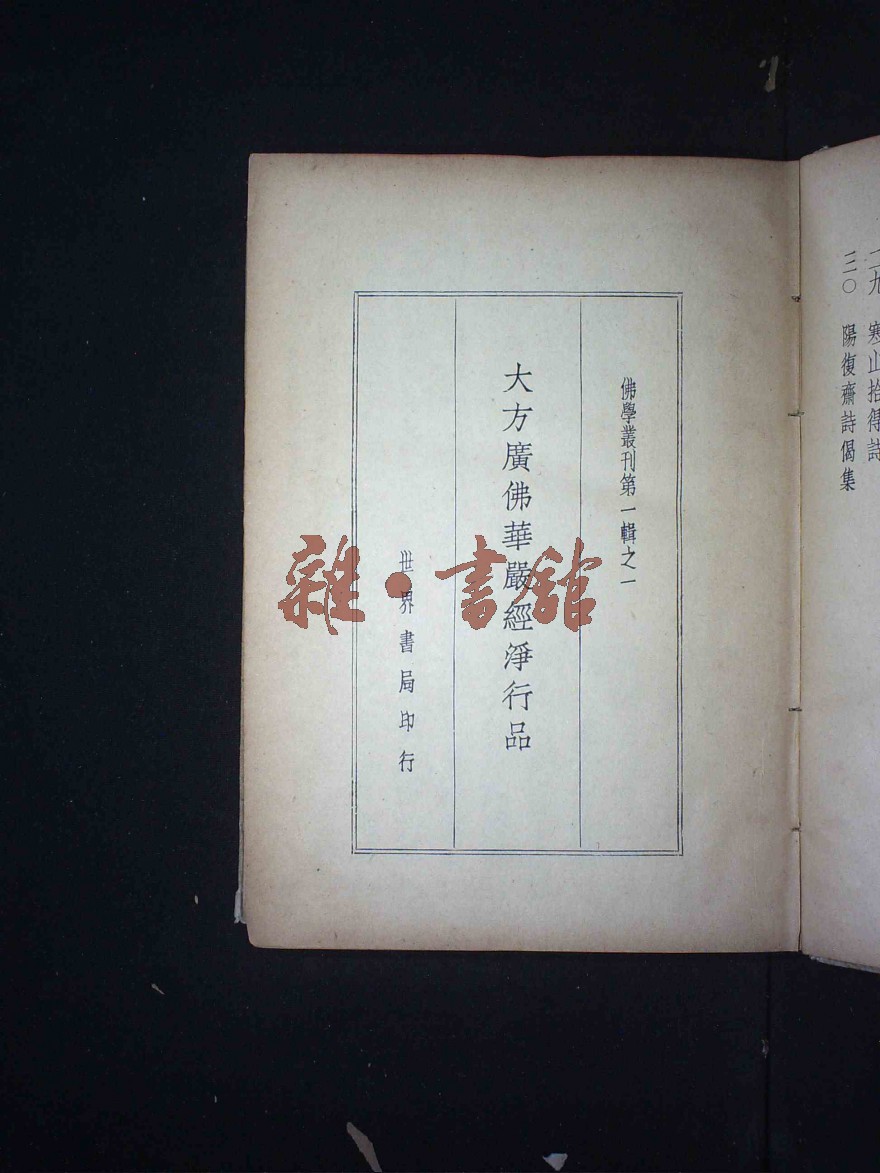 二九　寒山拾得詩
三〇　陽復齋詩偈集
佛學叢刊第一輯之一
大方廣佛華嚴經淨行品
世界書局印行
雜·書館